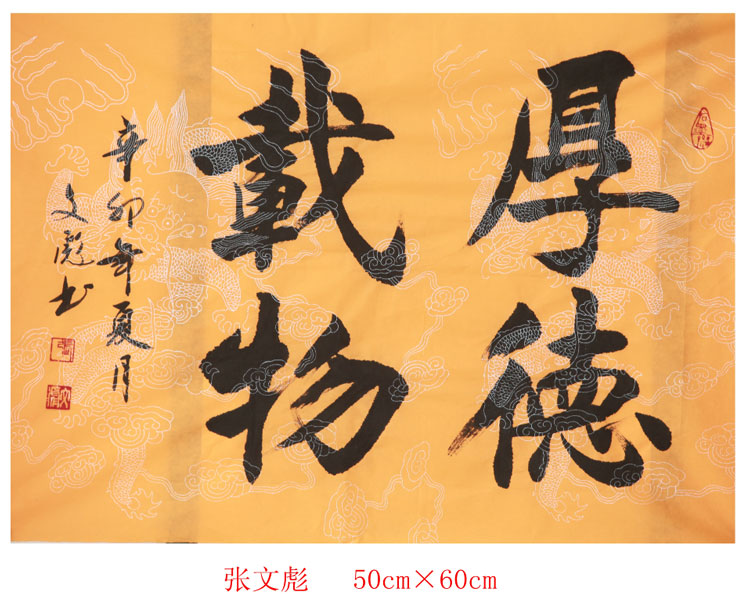 厚德
載物
辛卯年夏月
文彪书
张文彪 50cm×60cm